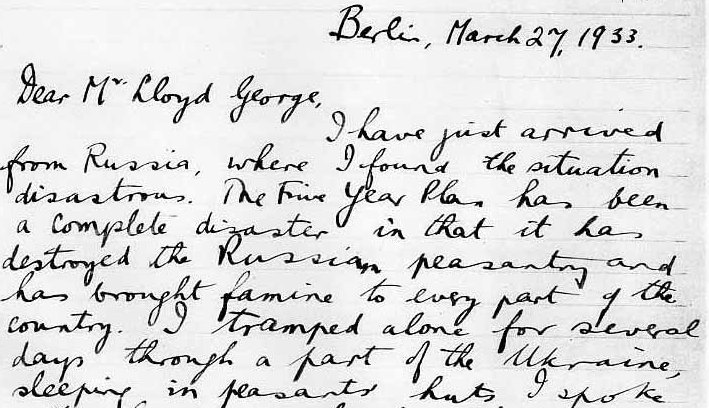 Berlin, March 27, 1933.
Dear Mr. Lloyd George,
I have just arrived
from Russia, where I found the situation
disastrous. The Five Year Plan has been
a complete disaster in that it has
destroyed the Russian peasantry and
has brought famine to every part of the
country. I tramped alone for several
days through a part of the Ukraine,
sleeping in peasants' huts. I spoke